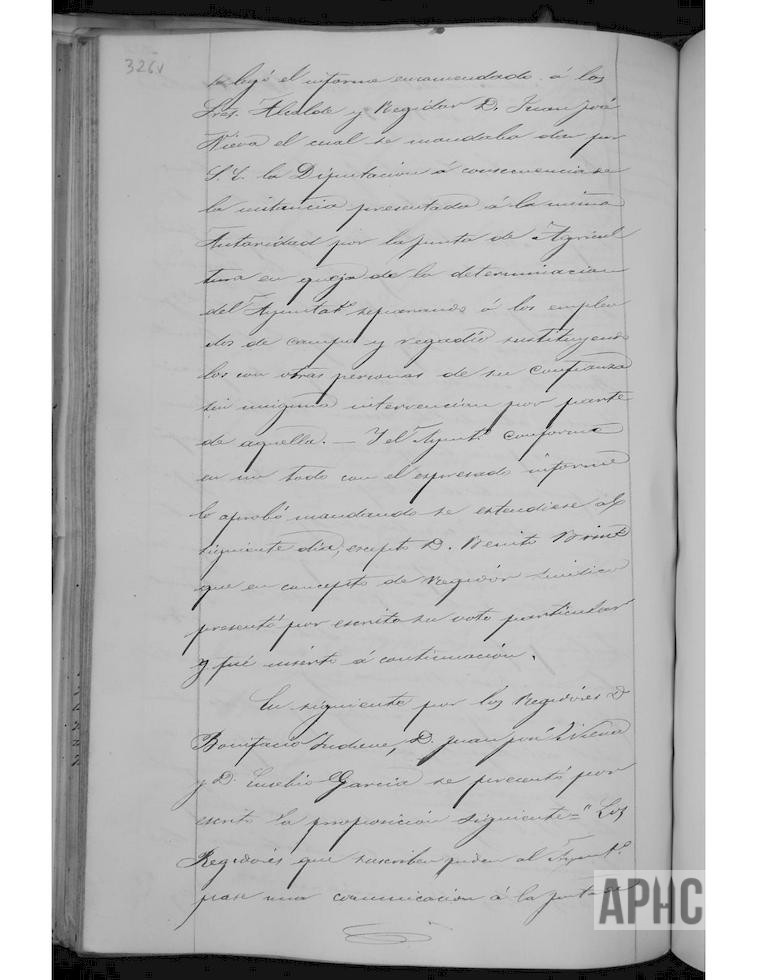 326v
se leyó el informe encomendado á los
Sres. Alcalde y Regidor D. Juan José
Nieva el cual se mandaba dar por
S. E. la Diputacion á consecuencia de
la instancia presentada á la misma
Autoridad por la junta de Agricul
tura en queja de la determinacion
del Ayuntato. separando á los emplea
dos de campo y regadío sustituyendo
los con otras personas de su confianza
sin ninguna intervencion por parte
de aquella. — Y el Ayunto. conforme
en un todo con el espresado informe
lo aprobó mandando se estendiese al
siguiente dia, escepto D. Benito
que en concepto de Regidor sindico
presentó por escrito su voto particular
y fué inserto á continuación.
En siguiente por los Regidores D.
Bonifacio D. Juan José Nieva
y D. Eusebio Garcia se presentó por
escrito la proposicion siguiente = "Los
Regidores que suscriben piden al Ayunto.
pase una comunicacion á la junta de
APHC